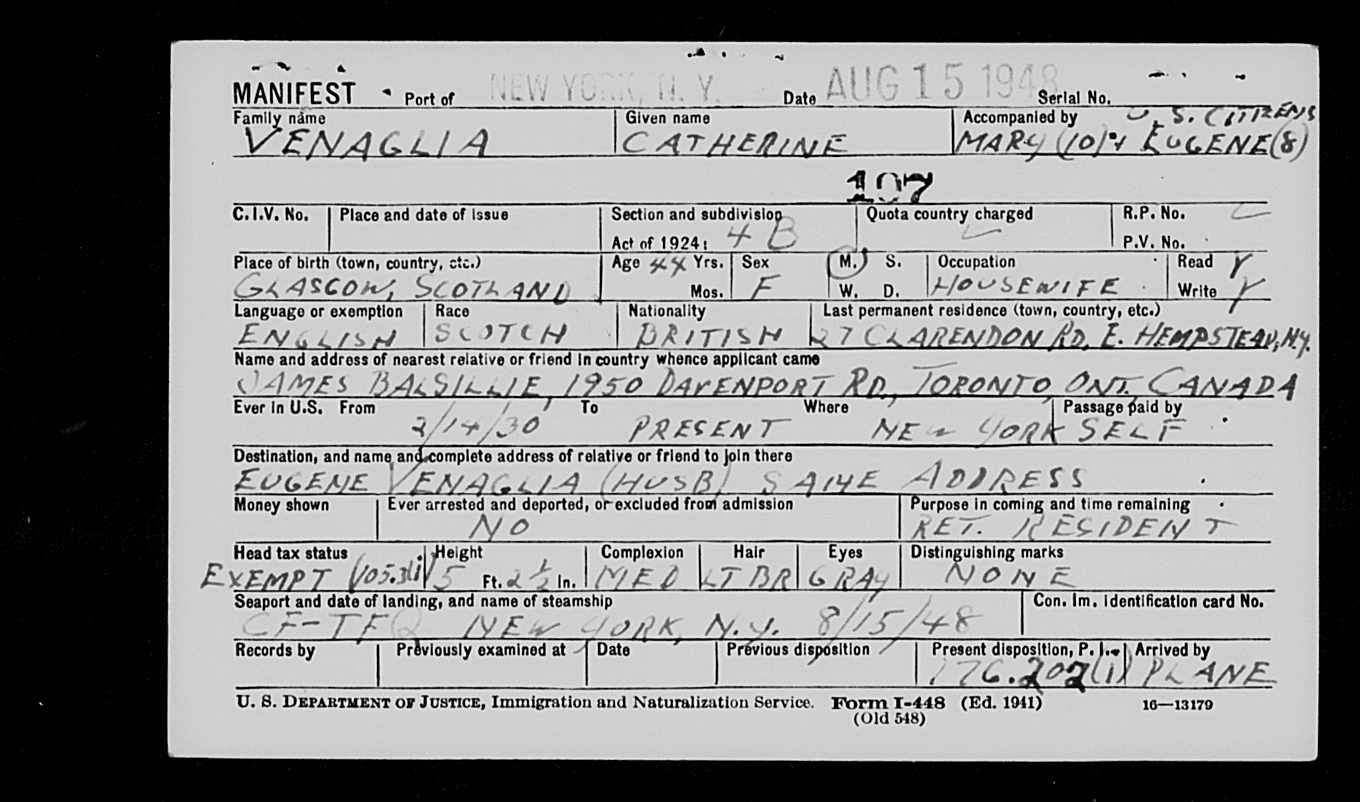 MANIFEST Port of NEW YORK, N. Y. Date AUG 15 1948 Serial No.
Family name Given name Accompanied by U.S. CITIZENS
VENAGLIA CATHERINE MARY (10) + EUGENE (8)
107
C.I.V. No. Place and date of issue Section and subdivision Quota country charged R.P. No.
Act of 1924: 4 B P.V. No.
Place of birth (town, country, etc.) Age 44 Yrs. Sex M. S. Occupation Read Y
GLASGOW, SCOTLAND Mos. F W. D. HOUSEWIFE Write Y
Language or exemption Race Nationality Last permanent residence (town, country, etc.)
ENGLISH SCOTCH BRITISH 27 CLARENDON RD, E. HEMPSTEAD, N.Y.
Name and address of nearest relative or friend in country whence applicant came
JAMES BALSILLIE, 1950 DAVENPORT RD., TORONTO, ONT. CANADA
Ever in U.S. From To Where Passage paid by
2/14/30 PRESENT NEW YORK SELF
Destination, and name and complete address of relative or friend to join there
EUGENE VENAGLIA (HUSB) SAME ADDRESS
Money shown Ever arrested and deported, or excluded from admission Purpose in coming and time remaining
NO RET. RESIDENT
Head tax status Height Complexion Hair Eyes Distinguishing marks
EXEMPT 5 Ft. 2 1/2 In. MED LT BR GRAY NONE
Seaport and date of landing, and name of steamship Con. Im. Identification card No.
NEW YORK, N.Y. 8/15/48
Records by Previously examined at Date Previous disposition Present disposition, P. I. Arrived by
176.202(1) PLANE
U. S. DEPARTMENT OF JUSTICE, Immigration and Naturalization Service. Form I-448 (Ed. 1941) 16—13179
(Old 548)